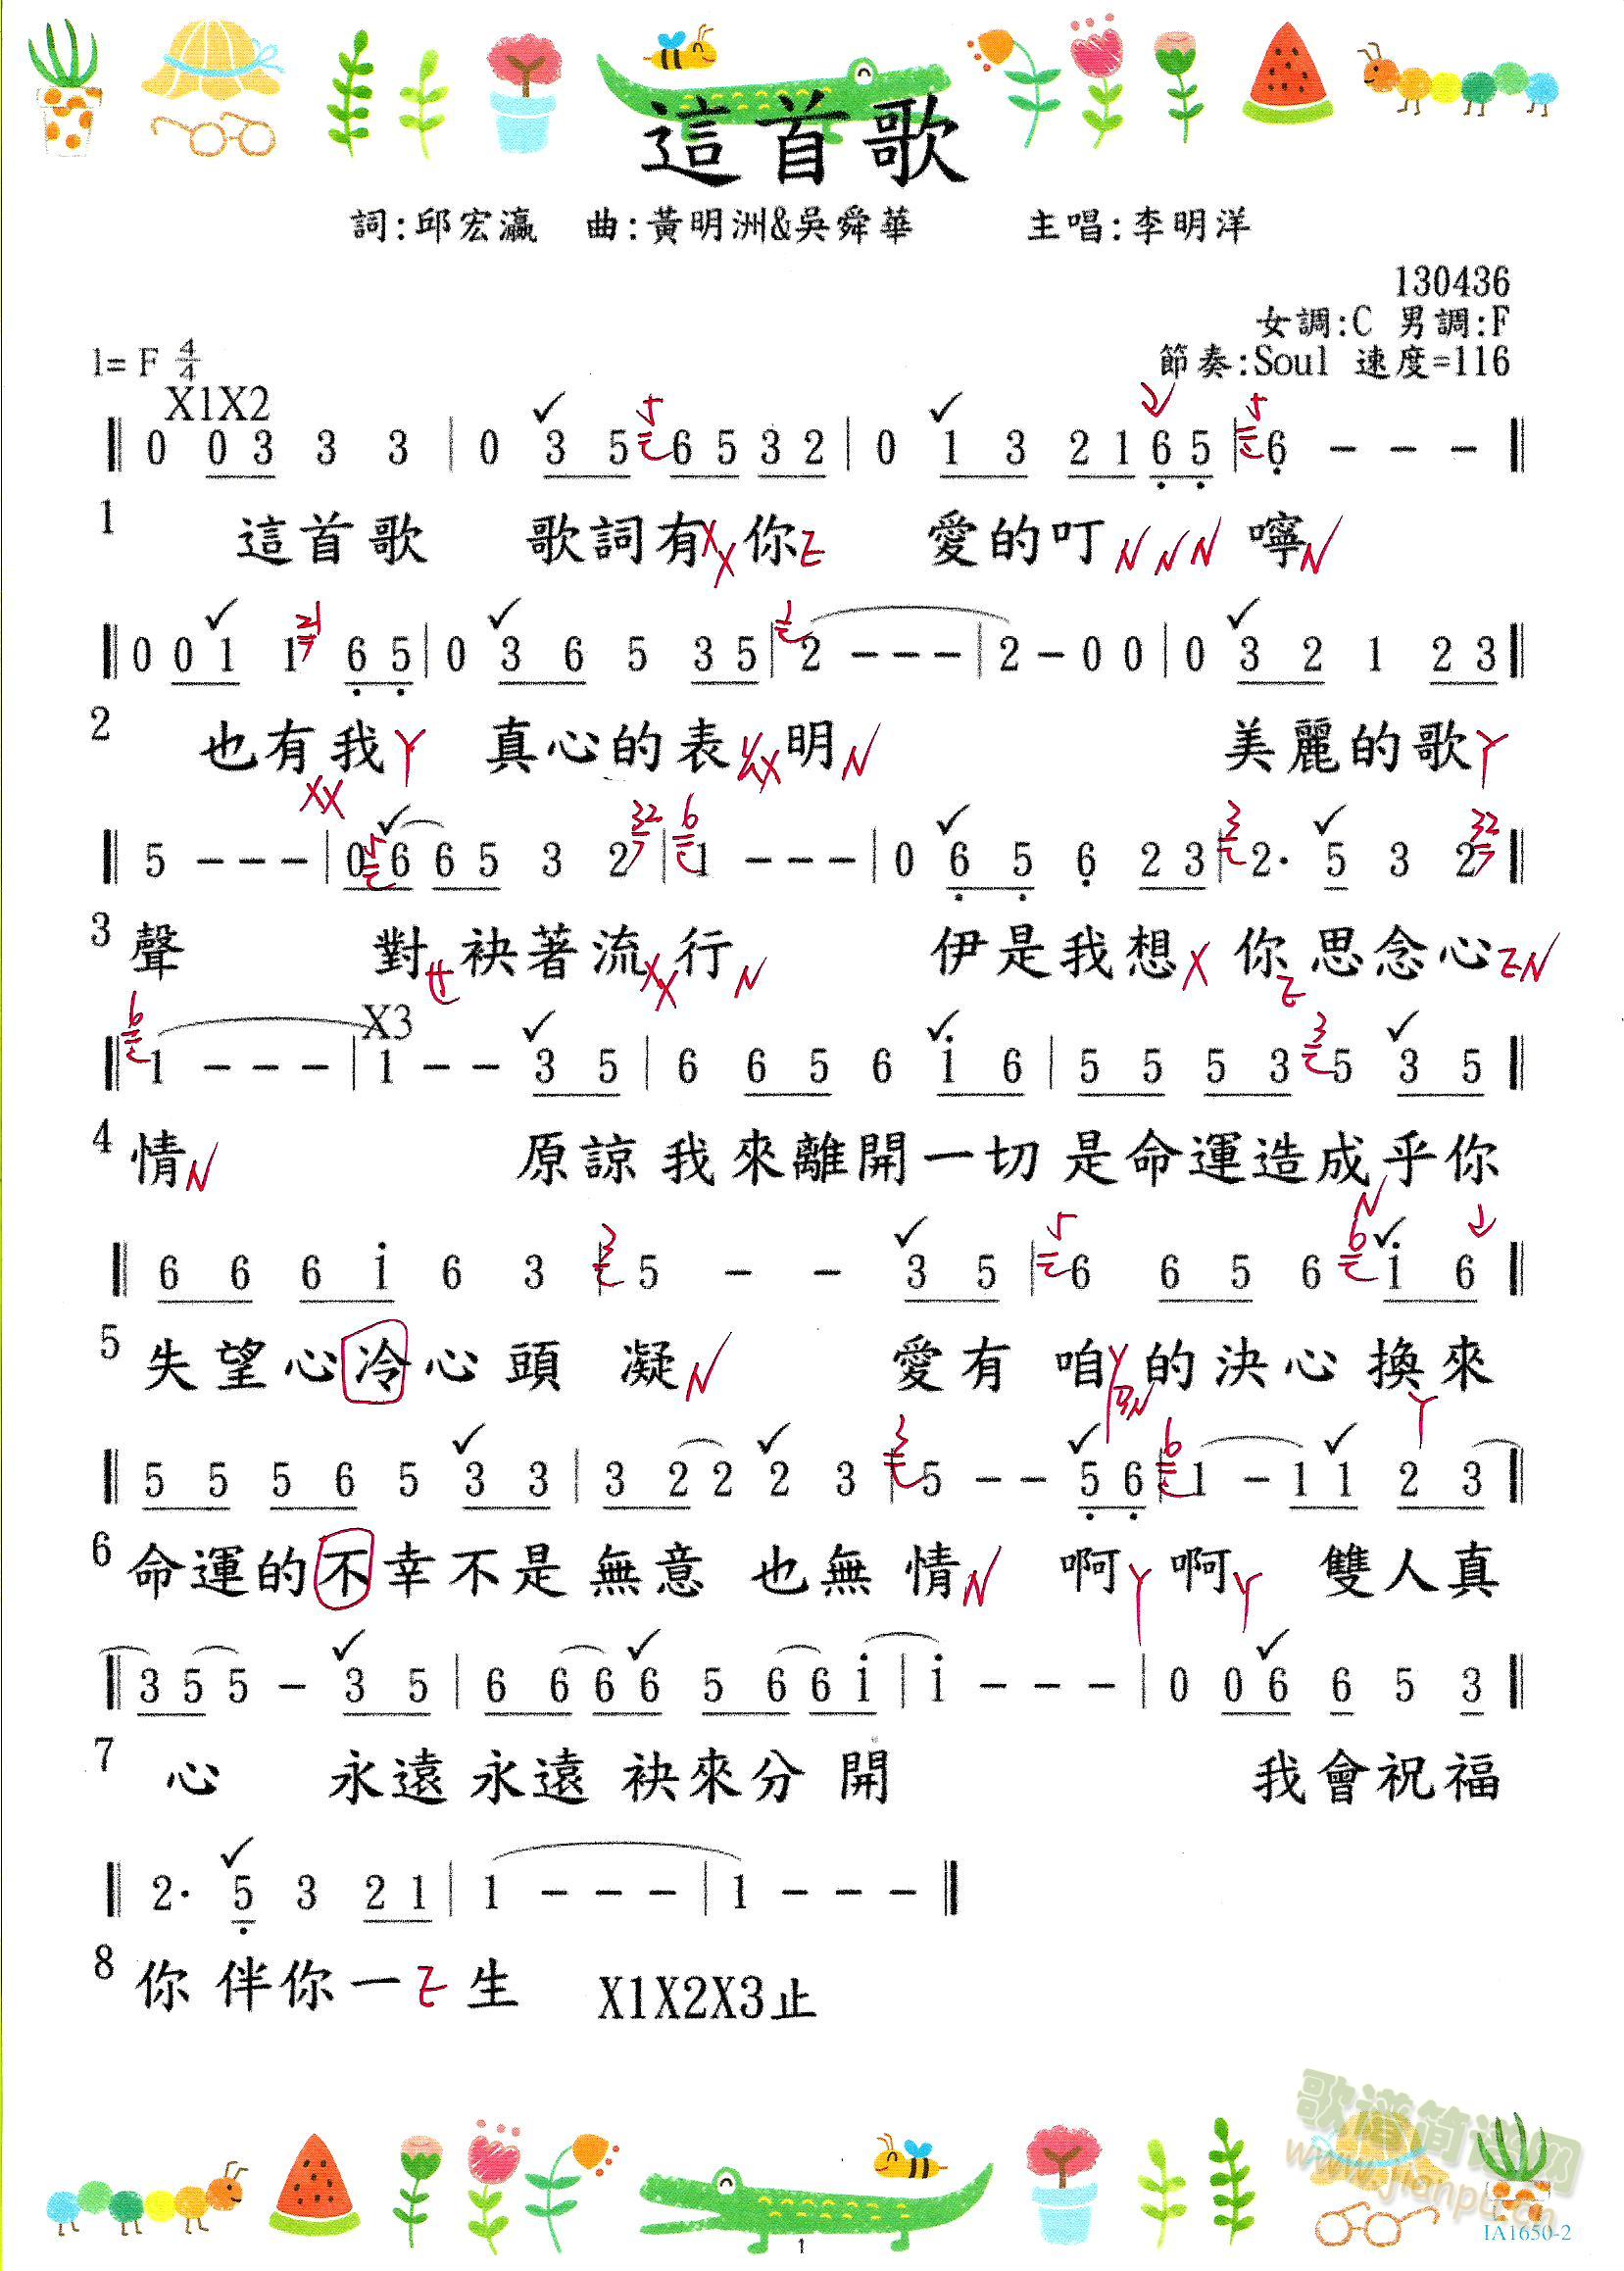 這首歌
詞:邱宏瀛 曲:黃明洲&吳舜華 主唱:李明洋
130436
女調:C 男調:F
1= F 4/4 節奏:Soul 速度=116
X1X2
0 0 3 3 3 | 0 3 5 6 5 3 2 | 0 1 3 2 1 6 5 | 6 - - -
1 這首歌 歌詞有你 愛的叮 嚀
0 0 1 1 6 5 | 0 3 6 5 3 5 | 2 - - - | 2 - 0 0 | 0 3 2 1 2 3
2 也有我 真心的表 明 美麗的歌
5 - - - | 0 6 6 5 3 2 | 1 - - - | 0 6 5 6 2 3 | 2· 5 3 2
3 聲 對 袂著流 行 伊是我想 你 思念心
X3
1 - - - | 1 - - 3 5 | 6 6 5 6 i 6 | 5 5 5 3 5 3 5
4 情 原諒 我來離開一切 是命運造成乎你
6 6 6 i 6 3 5 - - 3 5 | 6 6 5 6 i 6
5 失望心冷心頭 凝 愛有 咱的決心 換來
5 5 5 6 5 3 3 | 3 2 2 2 3 5 - - 5 6 | 1 - 1 1 2 3
6 命運的不幸不是 無意 也無 情 啊 啊 雙人真
3 5 5 - 3 5 | 6 6 6 6 5 6 6 i | i - - - | 0 0 6 6 5 3
7 心 永遠 永遠 袂來分 開 我會祝福
2· 5 3 2 1 | 1 - - - | 1 - - -
8 你 伴你一 生 X1X2X3止
歌谱简谱网
www.jianpu.cn
1
IA1650-2